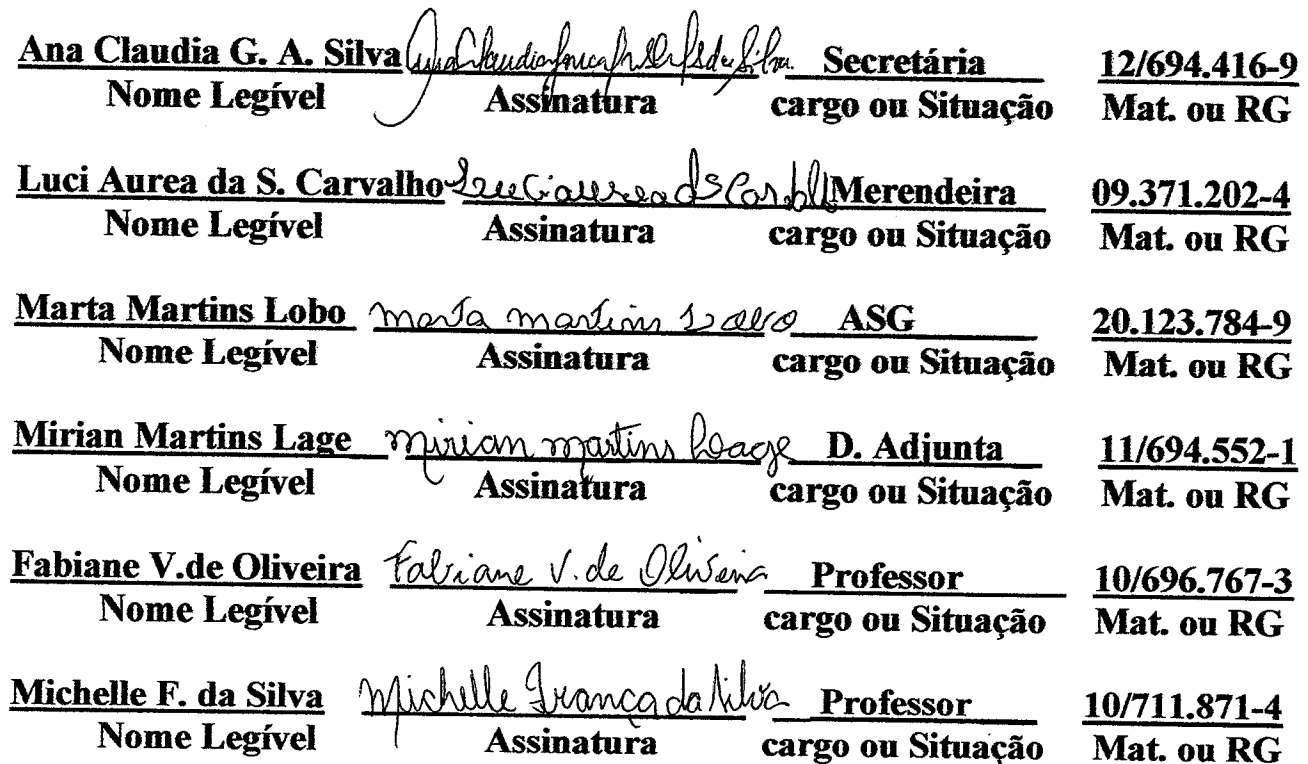 Ana Claudia G. A. Silva Secretária 12/694.416-9
Nome Legível Assinatura cargo ou Situação Mat. ou RG
Luci Aurea da S. Carvalho Merendeira 09.371.202-4
Nome Legível Assinatura cargo ou Situação Mat. ou RG
Marta Martins Lobo Marta Martins Lobo ASG 20.123.784-9
Nome Legível Assinatura cargo ou Situação Mat. ou RG
Mirian Martins Lage Mirian Martins Lage D. Adjunta 11/694.552-1
Nome Legível Assinatura cargo ou Situação Mat. ou RG
Fabiane V.de Oliveira Fabiane V. de Oliveira Professor 10/696.767-3
Nome Legível Assinatura cargo ou Situação Mat. ou RG
Michelle F. da Silva Michelle França da Silva Professor 10/711.871-4
Nome Legível Assinatura cargo ou Situação Mat. ou RG